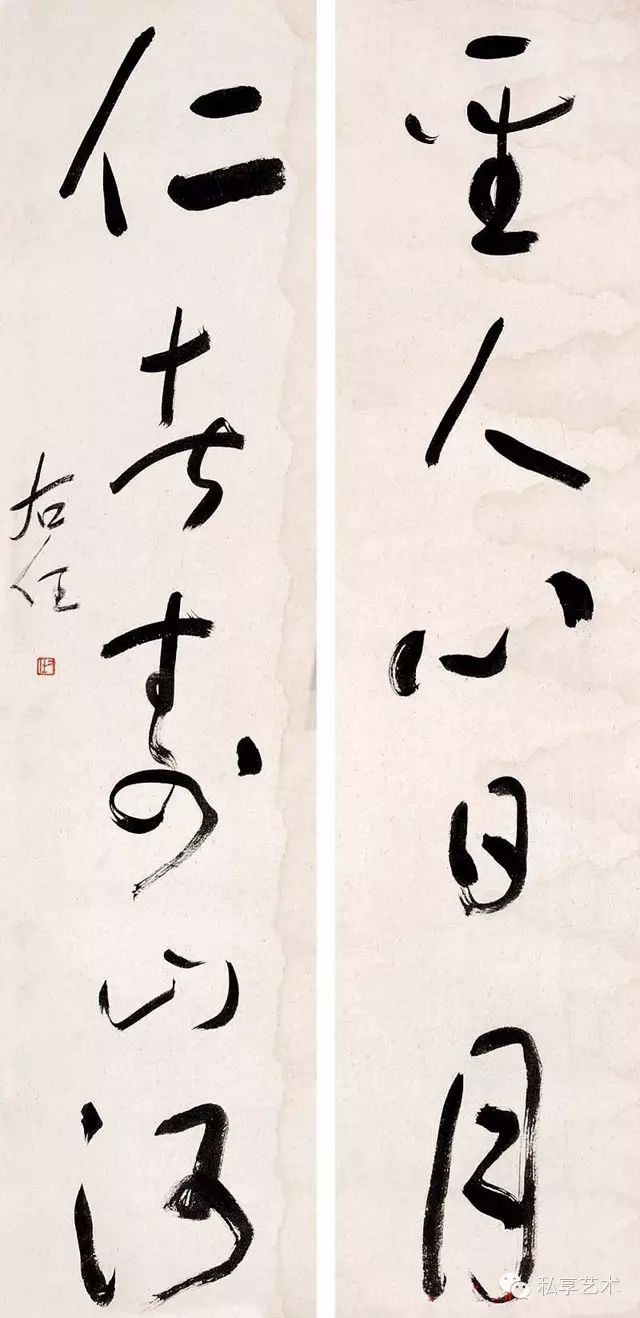 聖人心日月
仁者壽山河
右任
私享艺术